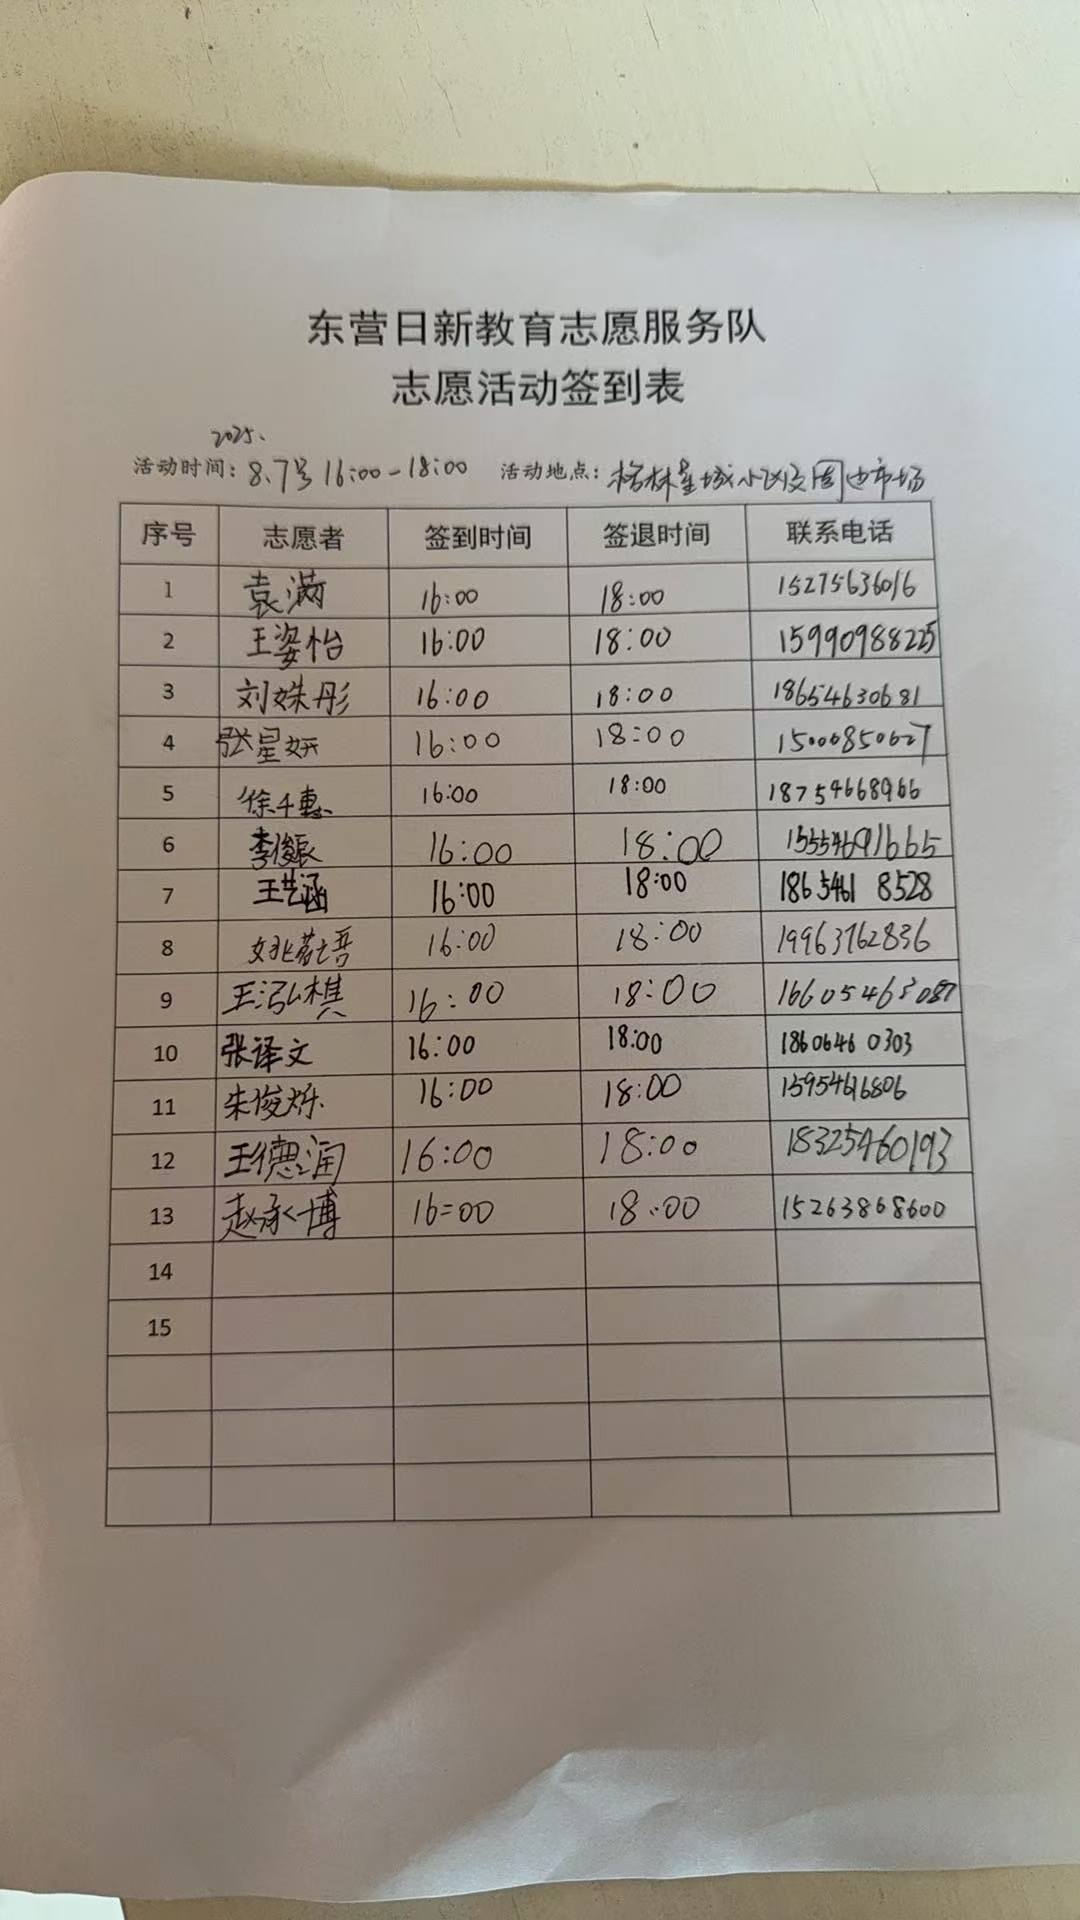 东营日新教育志愿服务队
志愿活动签到表
2025.
活动时间：8.7号 16:00-18:00 活动地点：格林星城小区及周边市场
序号 志愿者 签到时间 签退时间 联系电话
1 袁满 16:00 18:00 15275636016
2 王姿怡 16:00 18:00 15990988225
3 刘姝彤 16:00 18:00 18654630681
4 张星妍 16:00 18:00 15000850627
5 徐千惠 16:00 18:00 18754668966
6 李俊辰 16:00 18:00 15554691665
7 王艺涵 16:00 18:00 1865461 8528
8 姚 16:00 18:00 19963762836
9 王泓棋 16:00 18:00
10 张译文 16:00 18:00 1860646 0303
11 朱俊烁 16:00 18:00 15954616806
12 王德润 16:00 18:00 18325460193
13 赵承博 16:00 18:00 15263868600
14
15